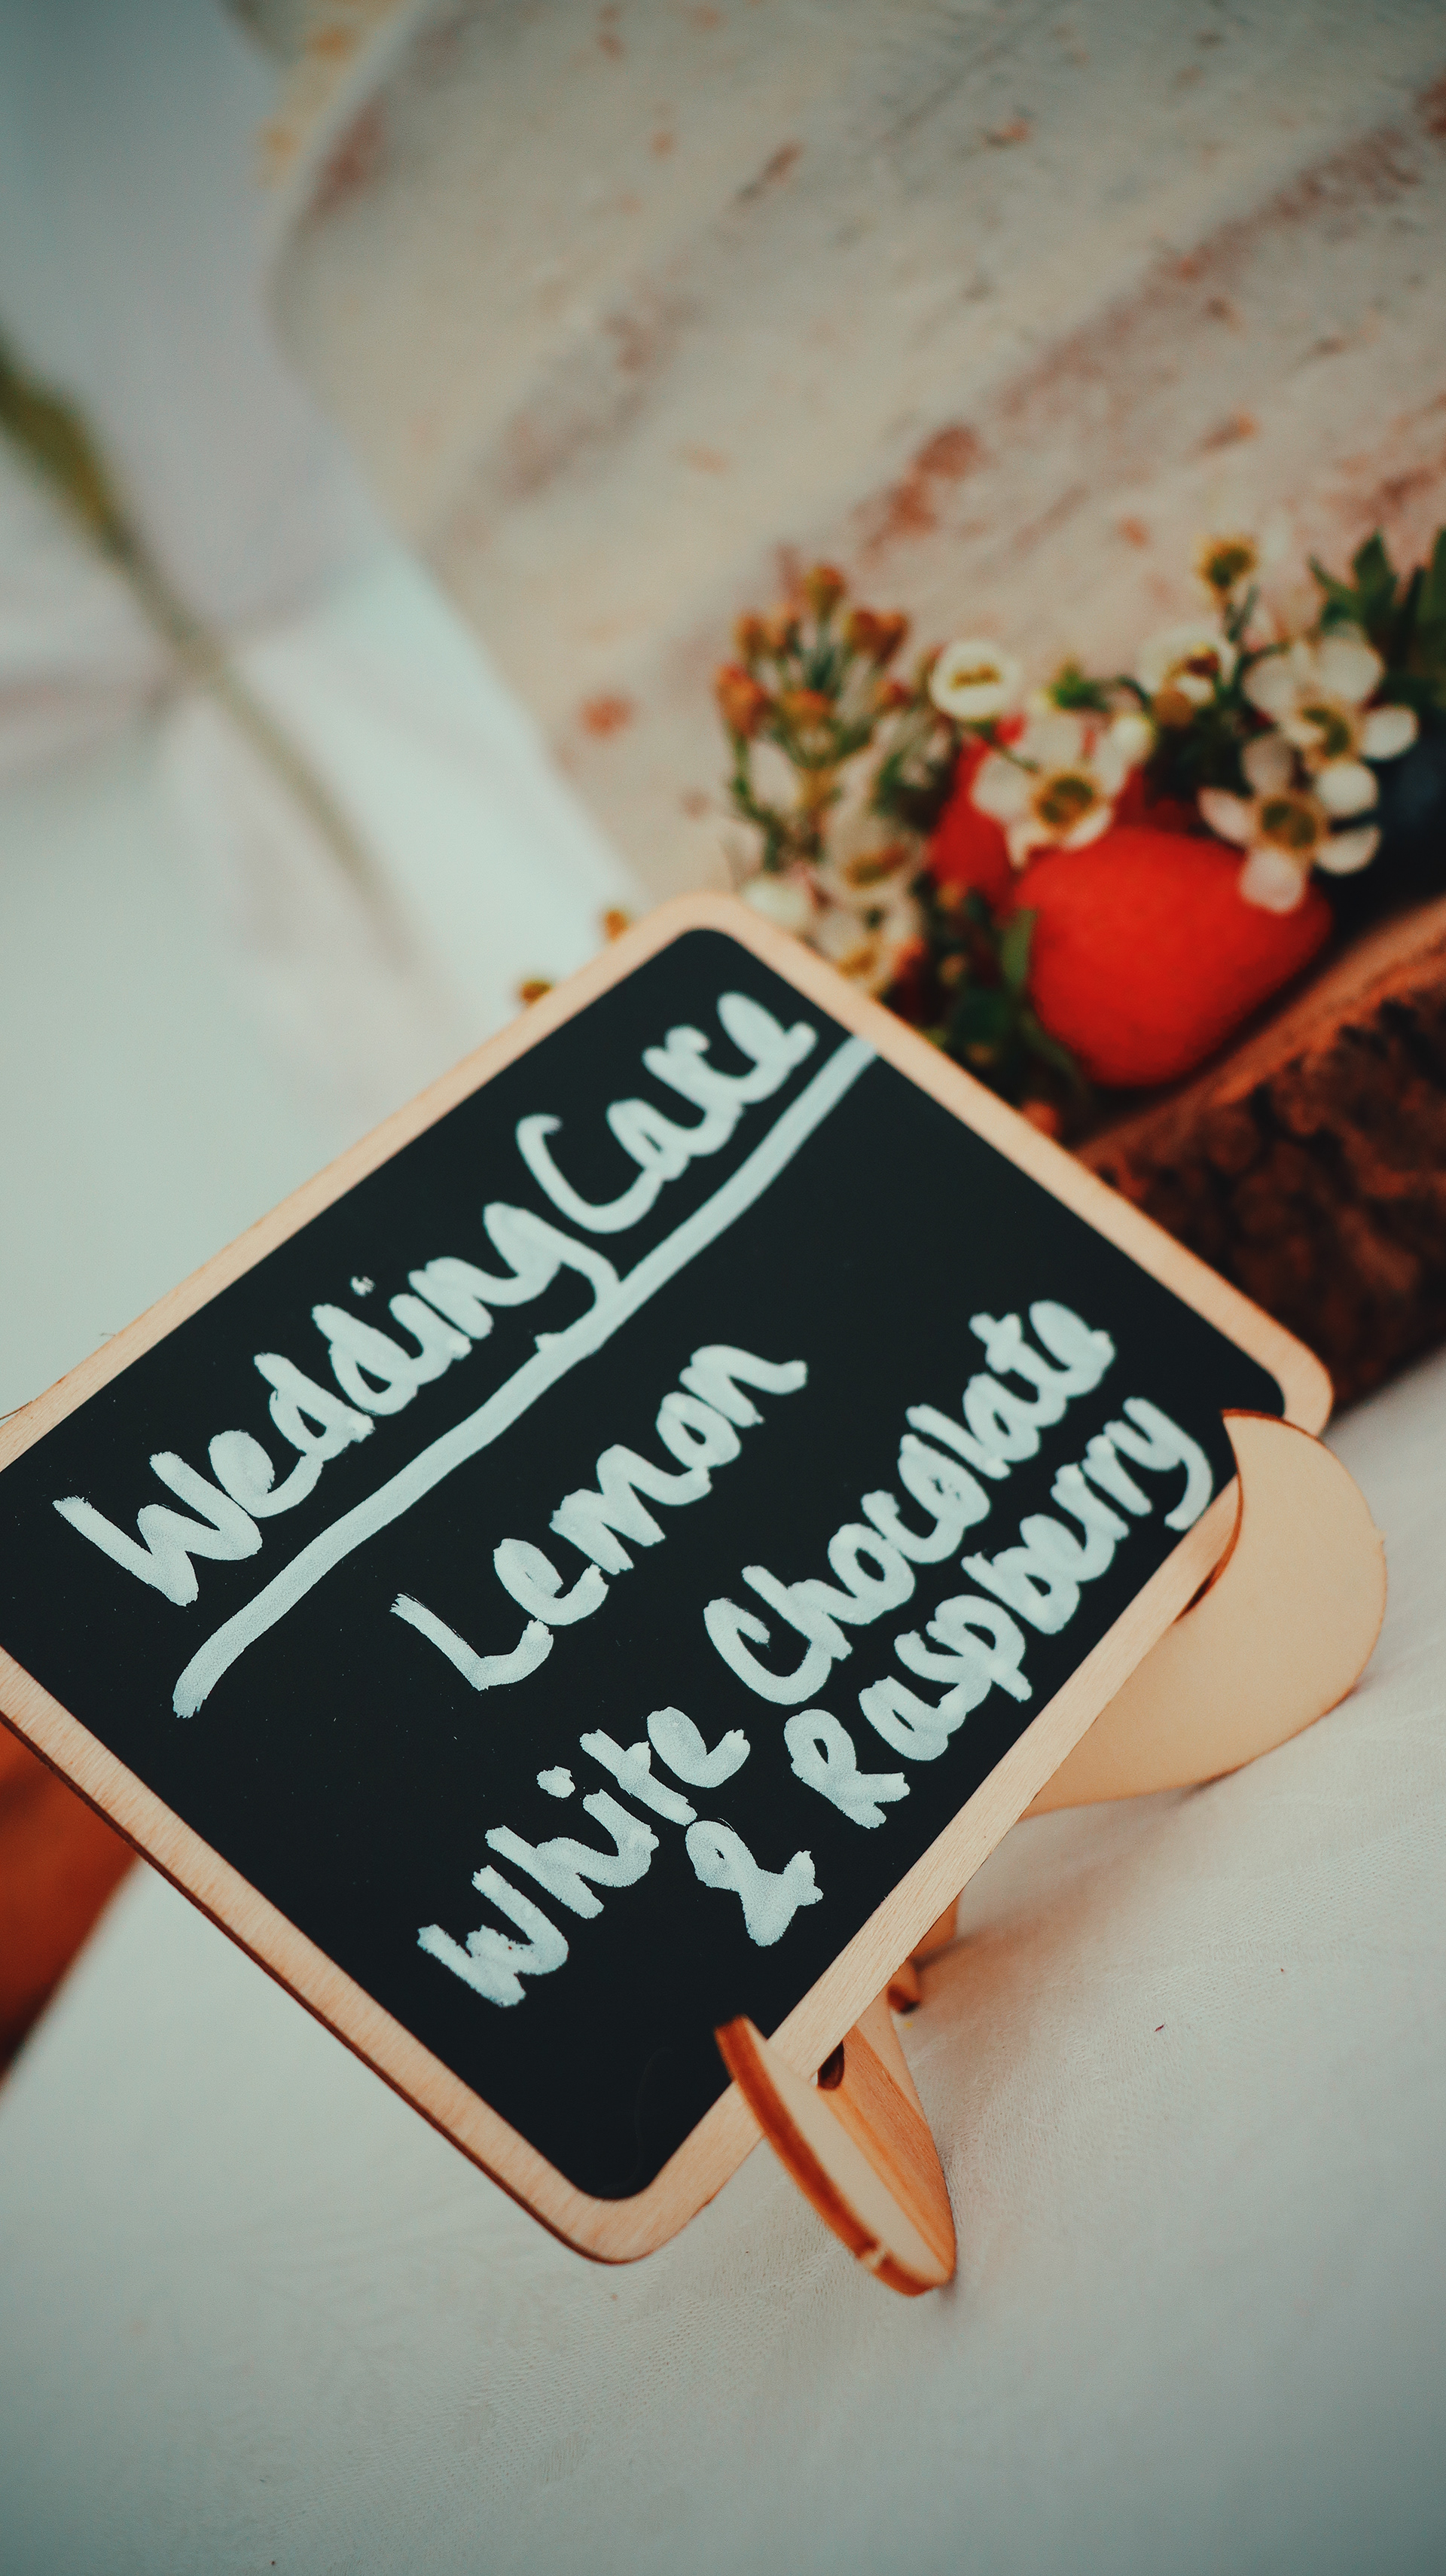 Wedding Cake
Lemon
White Chocolate
& Raspberry